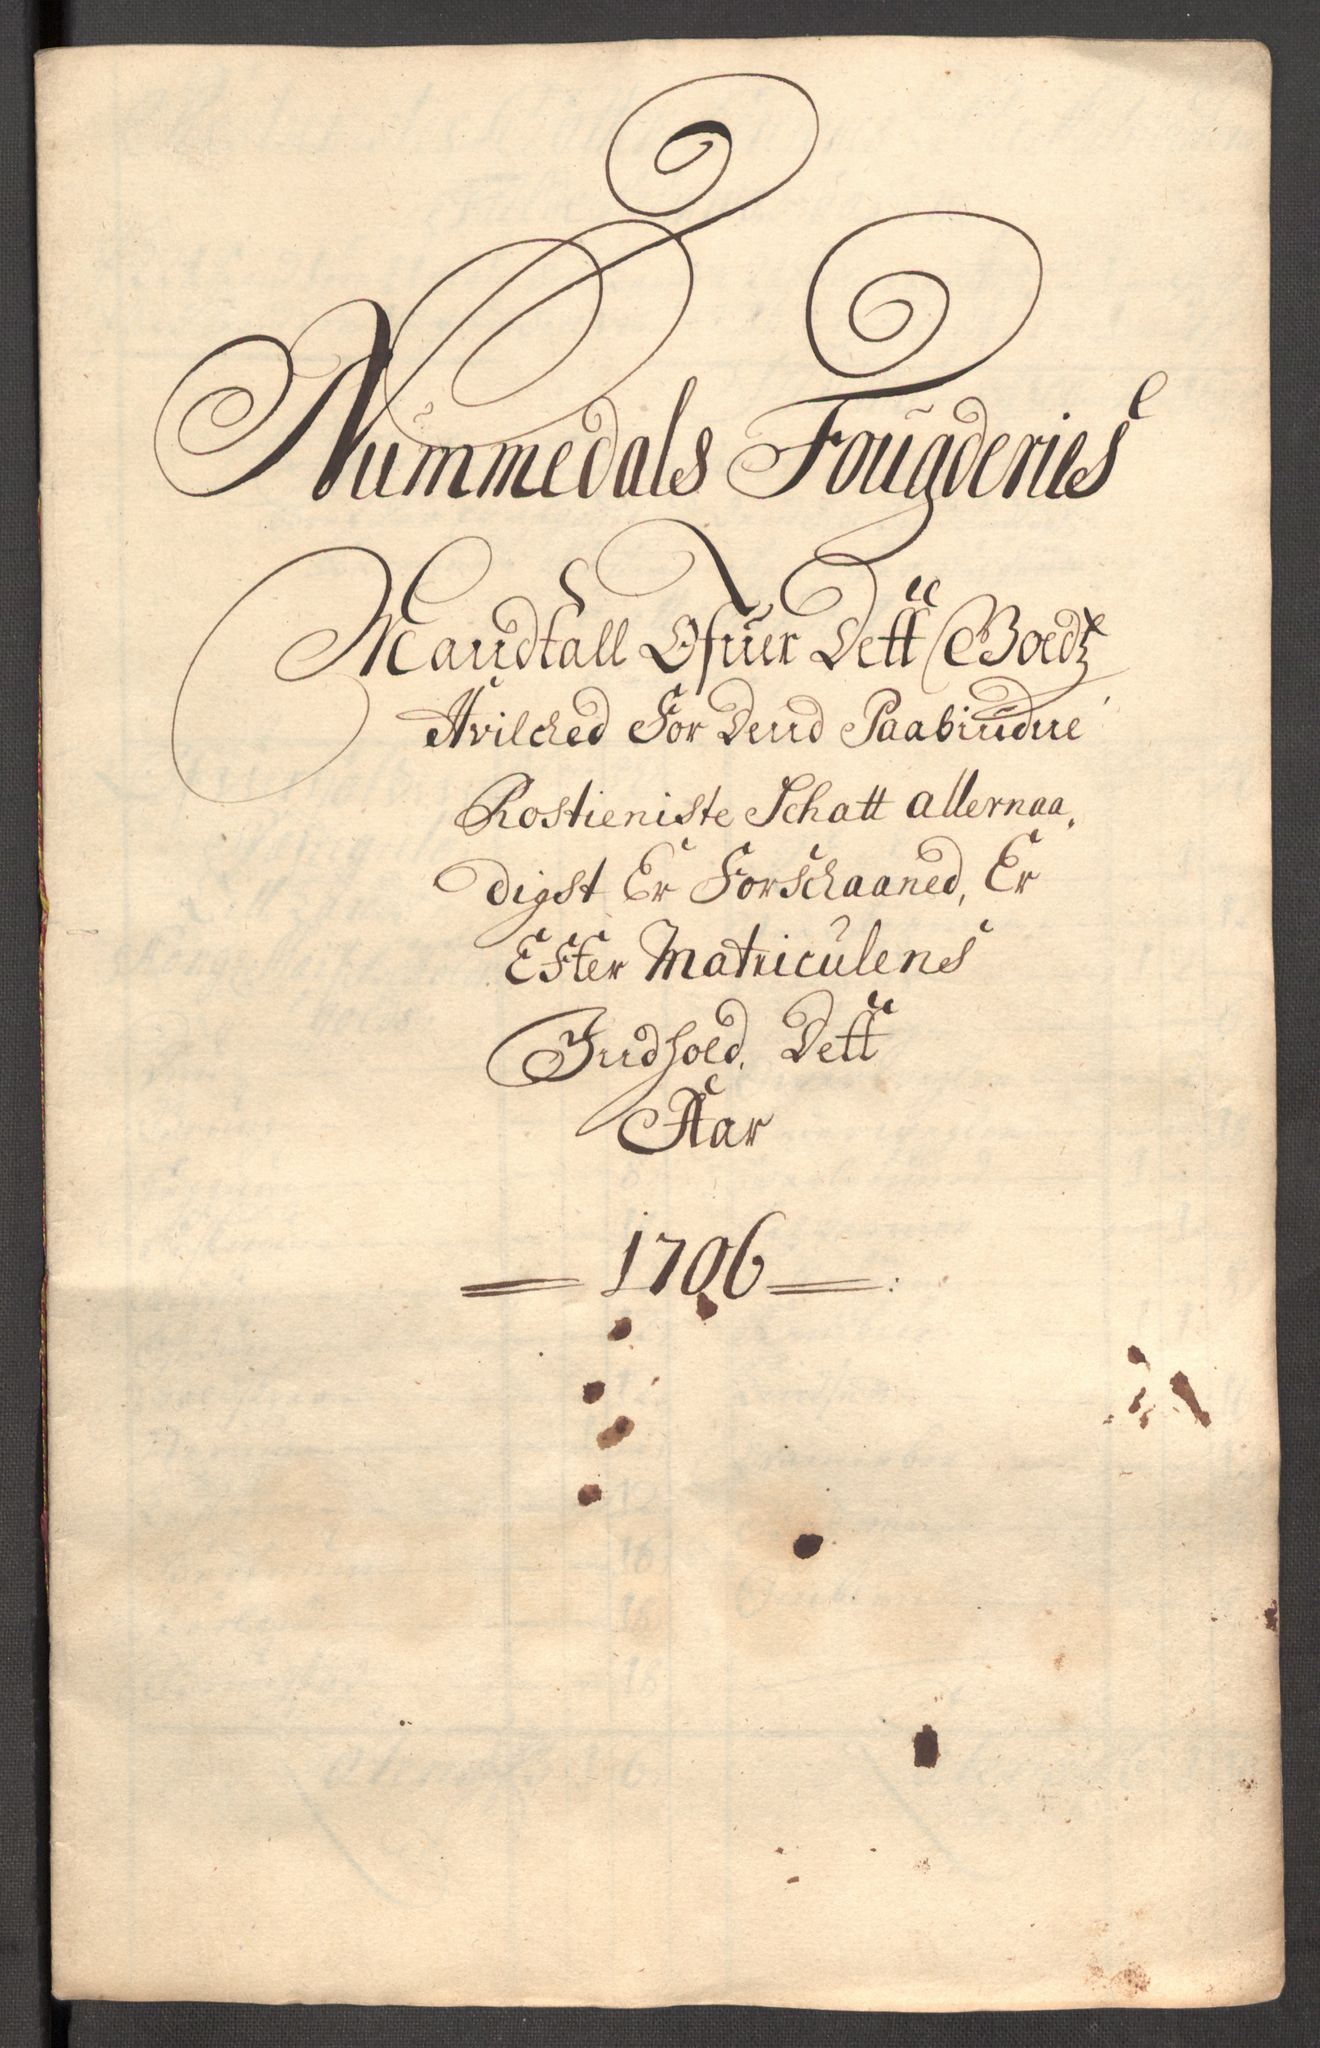 Nummedals Fougderies
Mandtall Ofuer Dett Goedtz
Hvilched For Dend Paabudne
Rostieniste Schatt allernaa,
digst Er Forschaaned, Er
Efter Matriculens
Indhold. Dett
Aar
1706